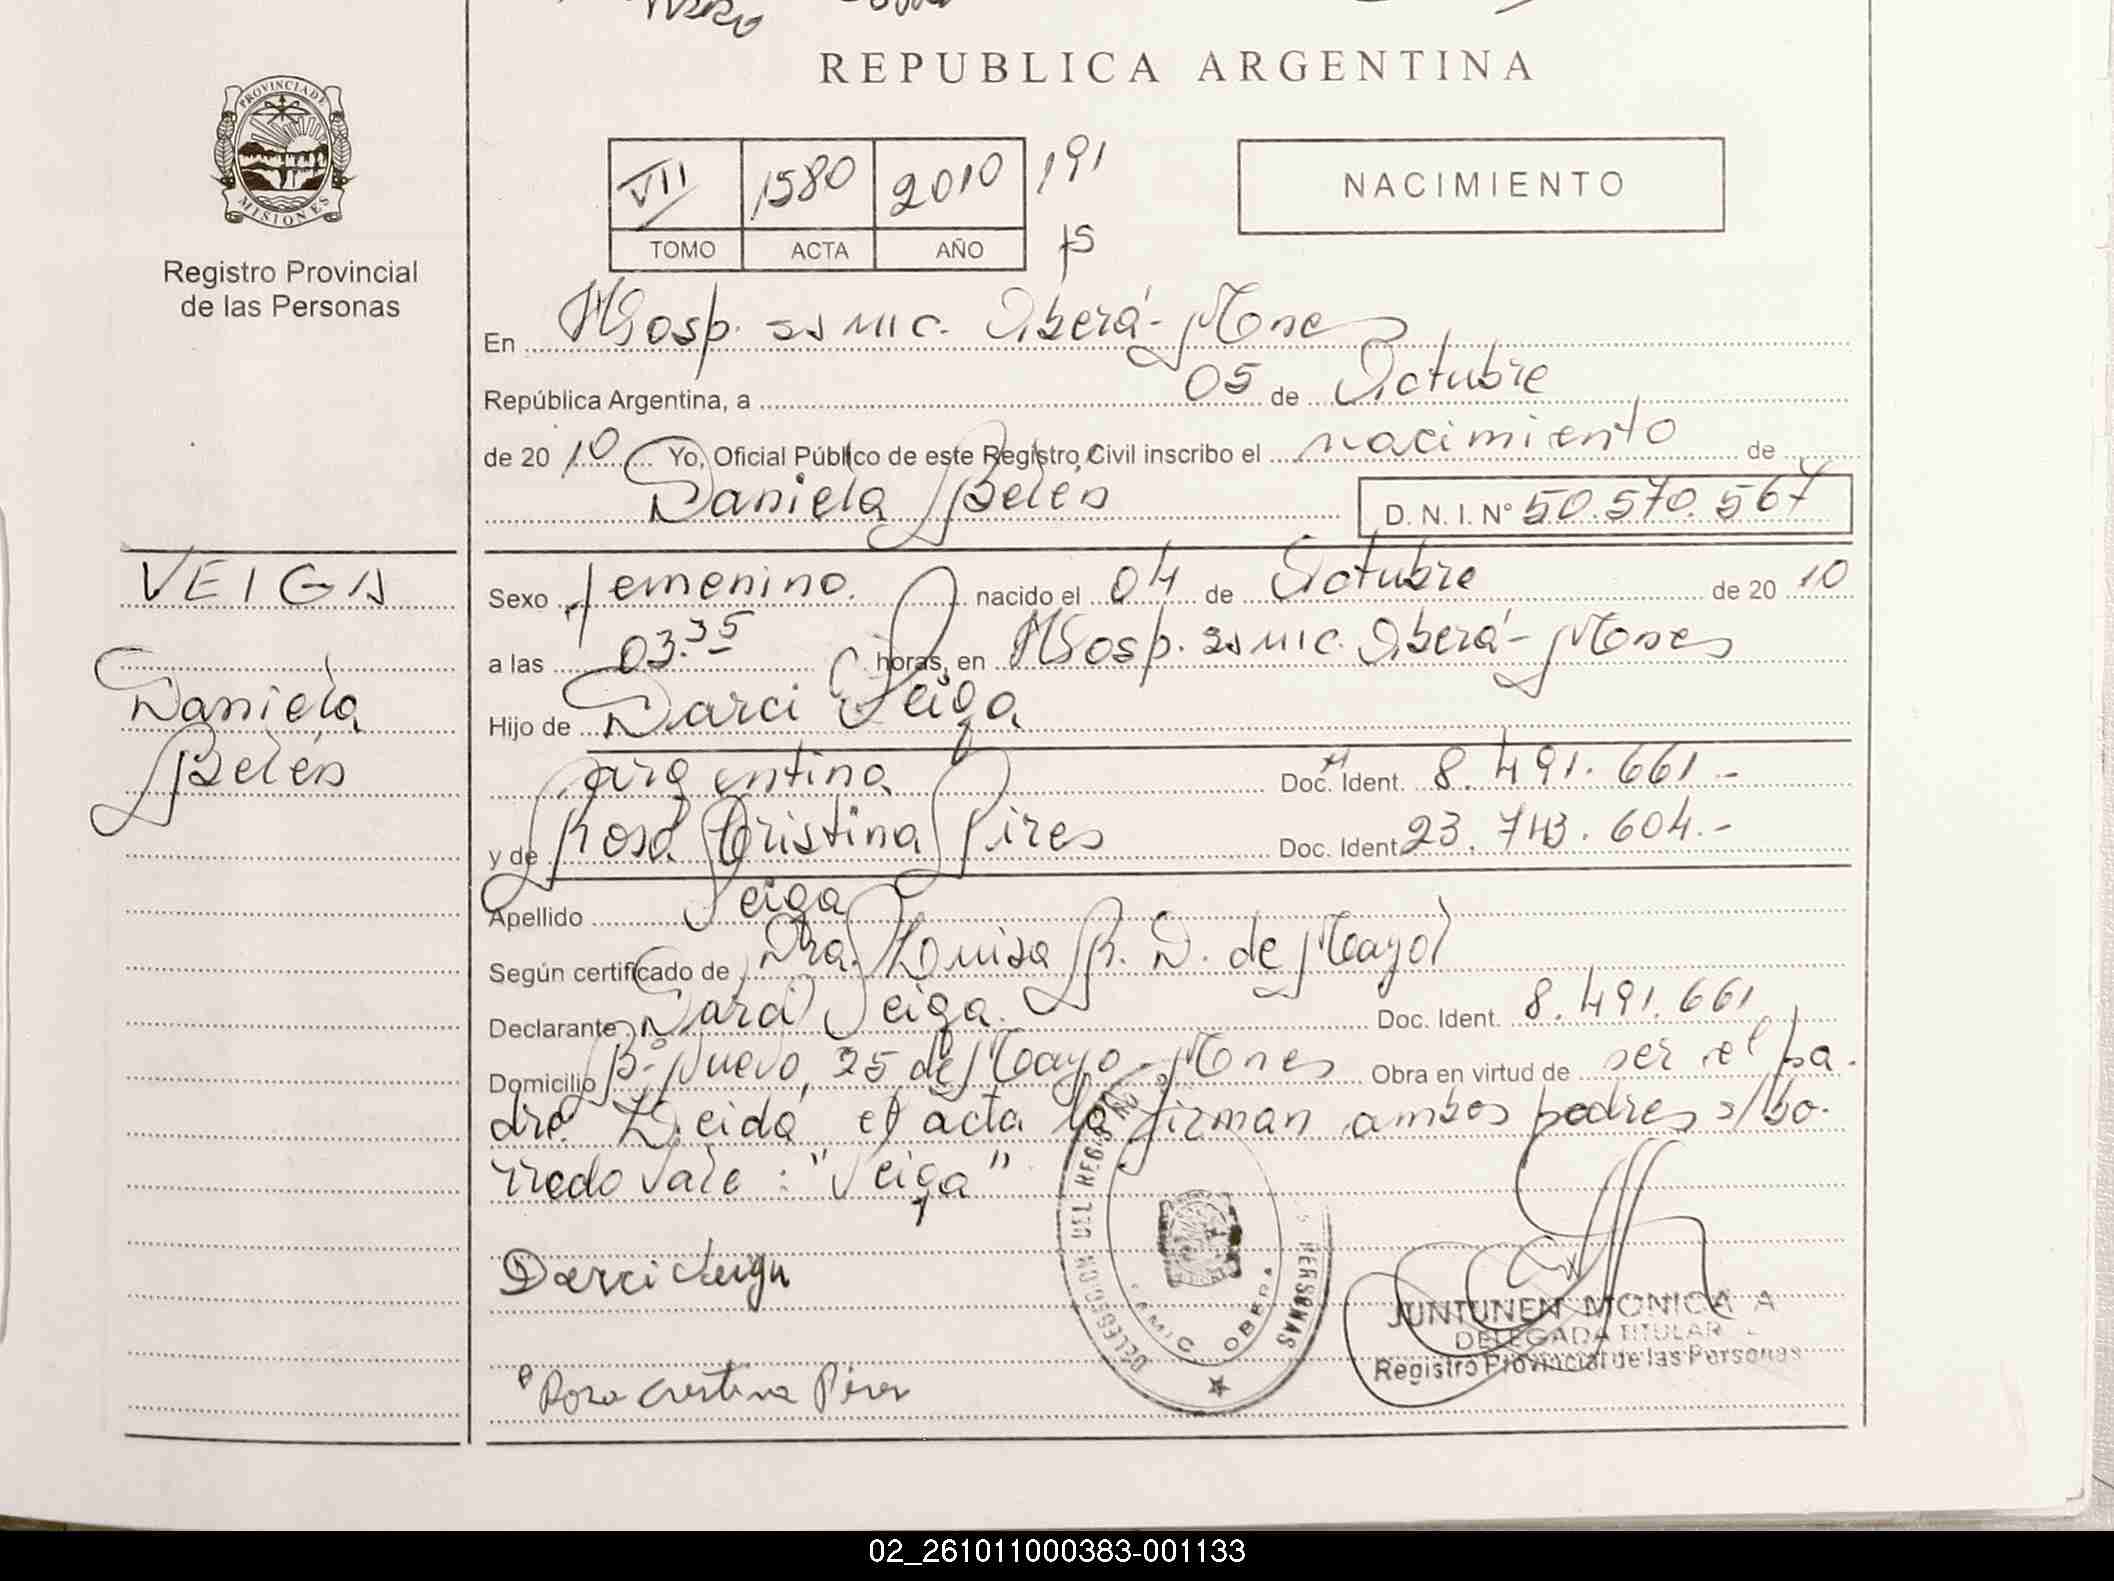 REPUBLICA ARGENTINA
PROVINCIA DE
MISIONES
Registro Provincial
de las Personas
VII 1580 2010 191
TOMO ACTA AÑO
NACIMIENTO
En Hosp. SS MIC. Oberá - Mones
República Argentina, a 05 de Octubre
de 2010 Yo, Oficial Público de este Registro Civil inscribo el nacimiento de
Daniela Belén D. N. I. N° 50.570.567
VEIGA
Daniela
Belén
Sexo femenino. nacido el 04 de Octubre de 2010
a las 03.35 horas, en Hosp. SS MIC. Oberá - Mones
Hijo de Darci Veiga
argentino Doc. Ident. M 8.491.661.-
y de Rosa Cristina Pires Doc. Ident. 23.743.604.-
Apellido Veiga
Según certificado de Dra. Luisa R. D. de Mayol
Declarante Darci Veiga. Doc. Ident. 8.491.661
Domicilio B° Nuevo, 25 de Mayo - Mones Obra en virtud de ser el pa-
dre. Leida el acta la firman ambos padres s/bo-
rrado vale: "Veiga"
Darci Veiga
Rosa Cristina Pires
DELEGACION DEL REGISTRO PERSONAS
SAMIC OBERA
JUNTUNEN MONICA A
DELEGADA TITULAR
Registro Provincial de las Personas
02_261011000383-001133